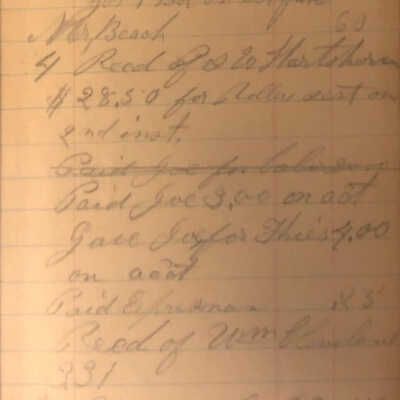 Mr Beach 60
4 Recd of S W Hartshorn
$28.50 for Rollers sent on
2nd inst.
Paid Joe for
Paid Joe 3.00 on act
Gave Joe for This 4.00
on acct
Paid Expressman 85
Recd of Wm Cleveland
231